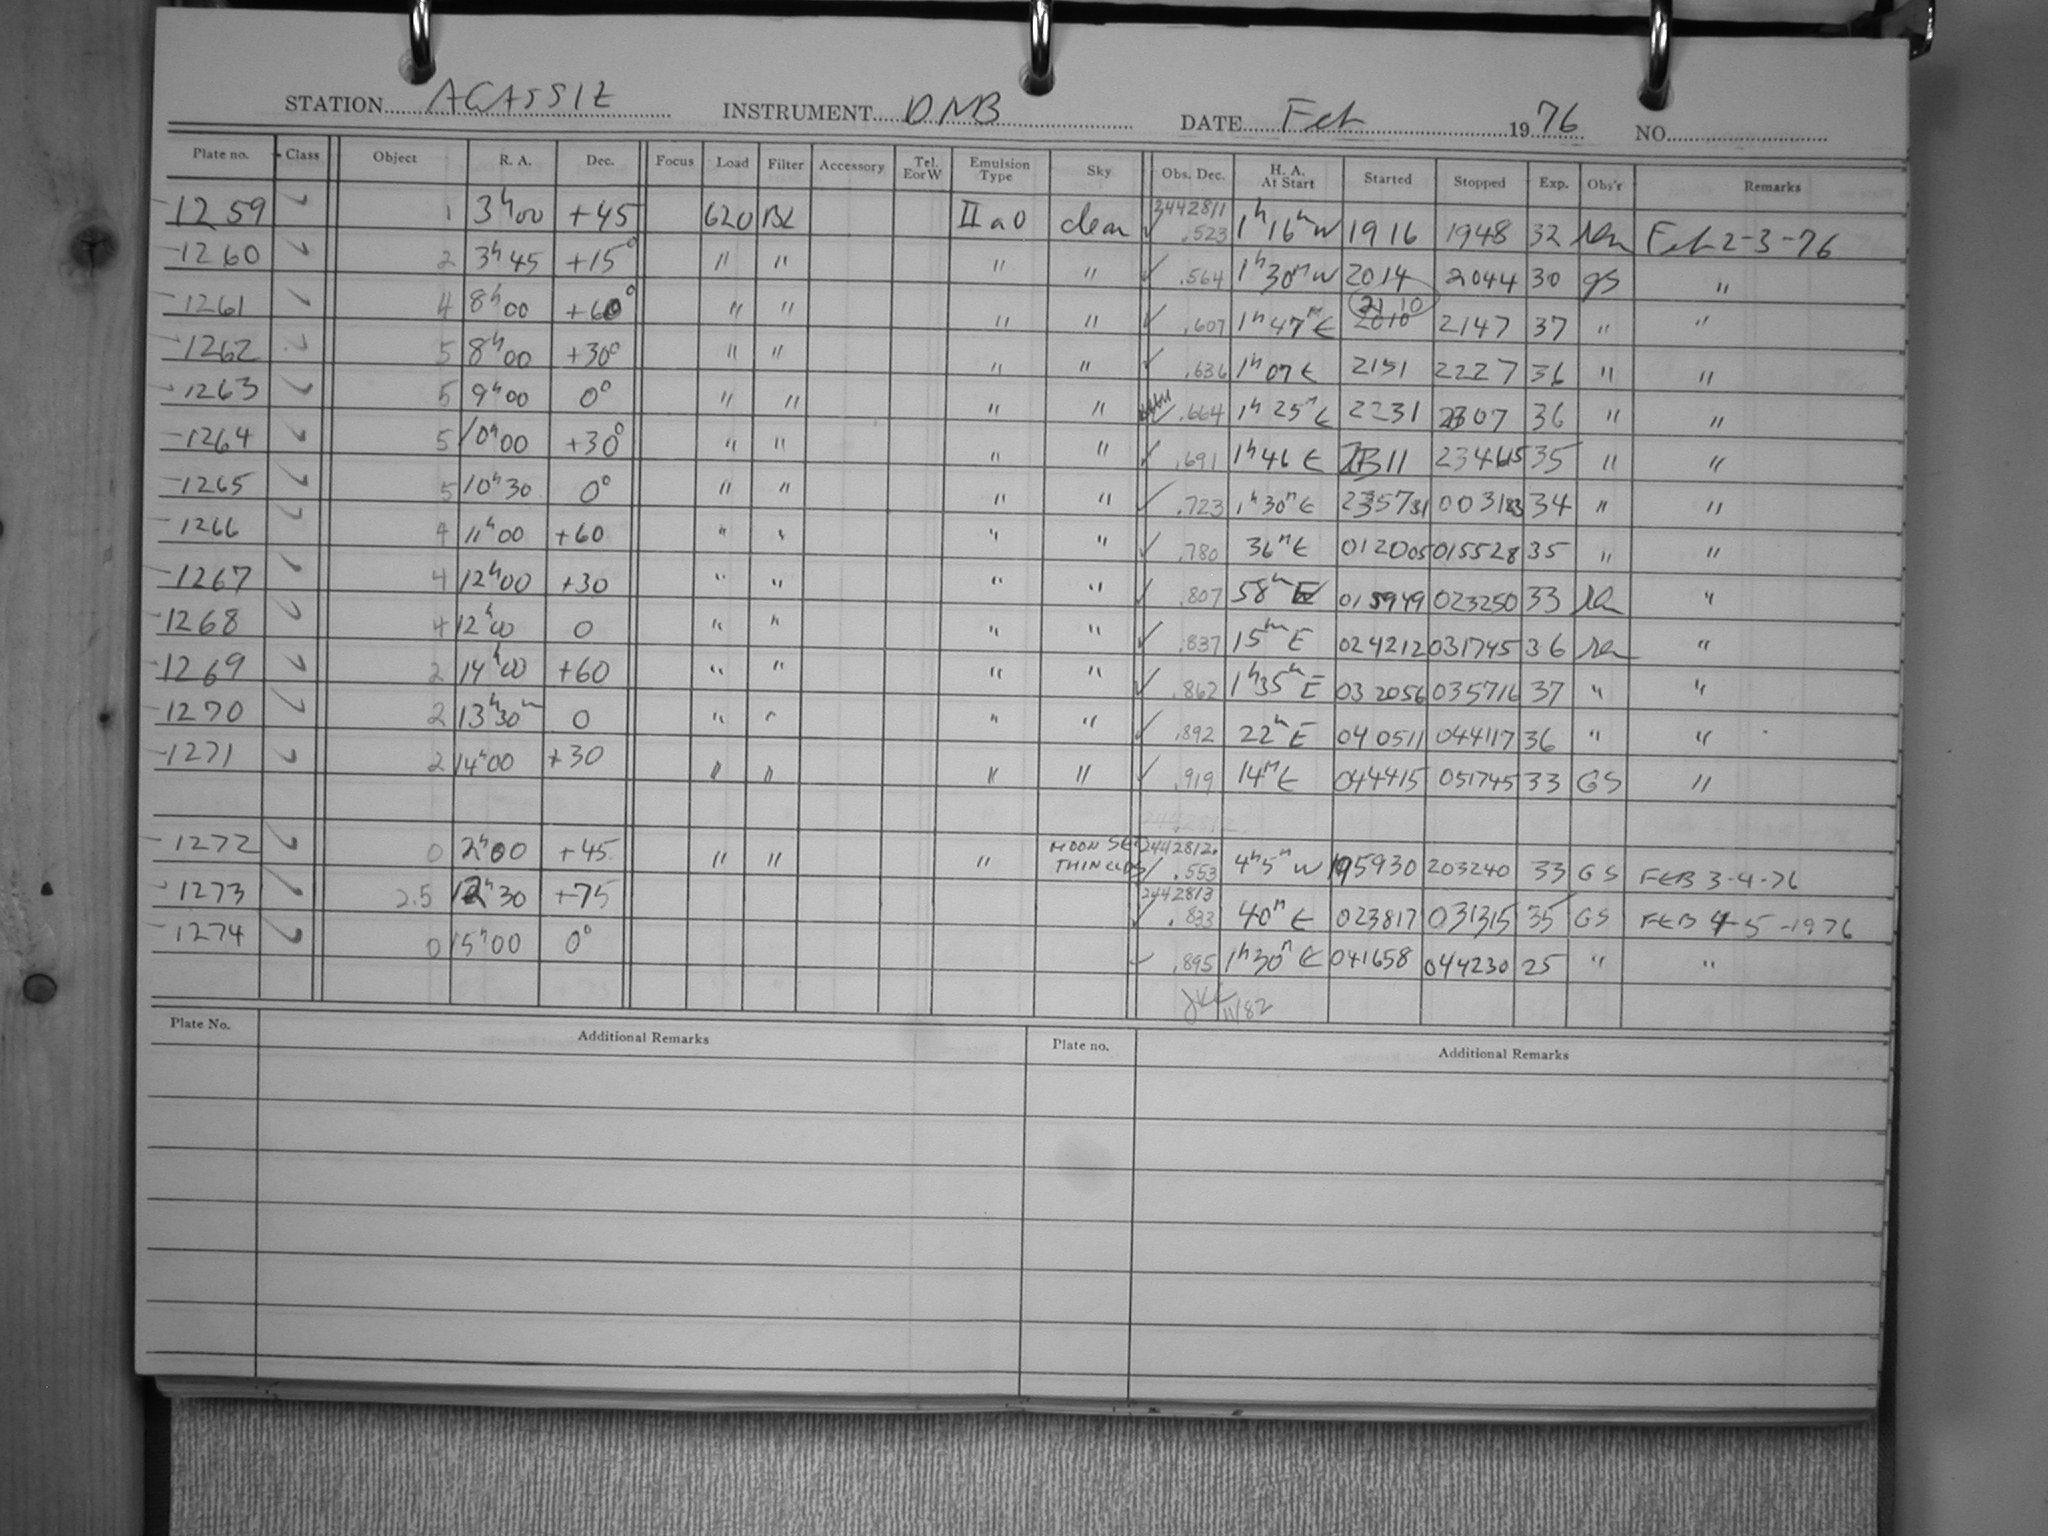 STATION AGASSIZ INSTRUMENT DNB DATE Feb 1976 NO.
Plate no. Class Object R. A. Dec. Focus Load Filter Accessory Tel. E or W Emulsion Type Sky Obs. Dec. H. A. At Start Started Stopped Exp. Obs'r Remarks
1259 ✓ 1 3h00 +45 620 BL IIa0 clear 2442811 ✓ .523 1h16m W 1916 1948 32 Feb 2-3-76
1260 ✓ 2 3h45 +15° " " " " ✓ .564 1h30m W 2014 2044 30 GS "
1261 ✓ 4 8h00 +60° " " " " ✓ .607 1h47m E 2010 2110 2147 37 " "
1262 ✓ 5 8h00 +30° " " " " ✓ .636 1h07 E 2151 2227 36 " "
1263 ✓ 5 9h00 0° " " " " ✓ .664 1h25m E 2231 2307 36 " "
1264 ✓ 5 10h00 +30° " " " " ✓ .691 1h46 E 2311 234615 35 " "
1265 ✓ 5 10h30 0° " " " " ✓ .723 1h30m E 235731 003183 34 " "
1266 ✓ 4 11h00 +60 " " " " ✓ .780 36m E 012005 015528 35 " "
1267 ✓ 4 12h00 +30 " " " " ✓ .807 58m E 015949 023250 33 "
1268 ✓ 4 12h00 0 " " " " ✓ .837 15m E 024212 031745 36 "
1269 ✓ 2 14h00 +60 " " " " ✓ .862 1h35m E 032056 035716 37 " "
1270 ✓ 2 13h30m 0 " " " " ✓ .892 22m E 040511 044117 36 " "
1271 ✓ 2 14h00 +30 " " " " ✓ .919 14m E 044415 051745 33 GS "
2442812.
1272 ✓ 0 2h00 +45 " " " MOON SET THIN CLDS 2442812. ✓ .553 4h5m W 195930 203240 33 GS FEB 3-4-76
1273 ✓ 2.5 12h30 +75 2442813 ✓ .833 40m E 023817 031315 35 GS FEB 4-5-1976
1274 ✓ 0 15h00 0° ✓ .895 1h30m E 041658 044230 25 " "
11/82
Plate No. Additional Remarks Plate no. Additional Remarks